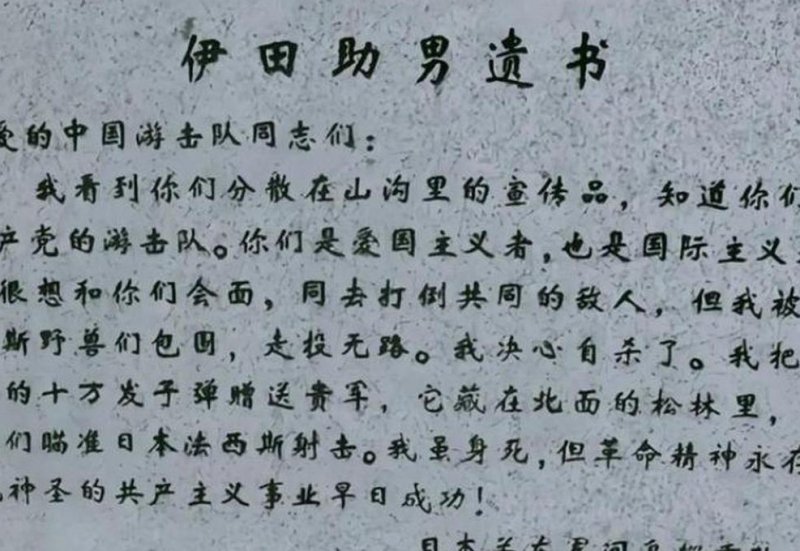 伊田助男遗书
爱的中国游击队同志们：
我看到你们分散在山沟里的宣传品，知道你们
产党的游击队。你们是爱国主义者，也是国际主义
很想和你们会面，同去打倒共同的敌人，但我被
斯野兽们包围，走投无路。我决心自杀了。我把
的十万发子弹赠送贵军，它藏在北面的松林里，
们瞄准日本法西斯射击。我虽身死，但革命精神永存
神圣的共产主义事业早日成功！
日本关东军间岛